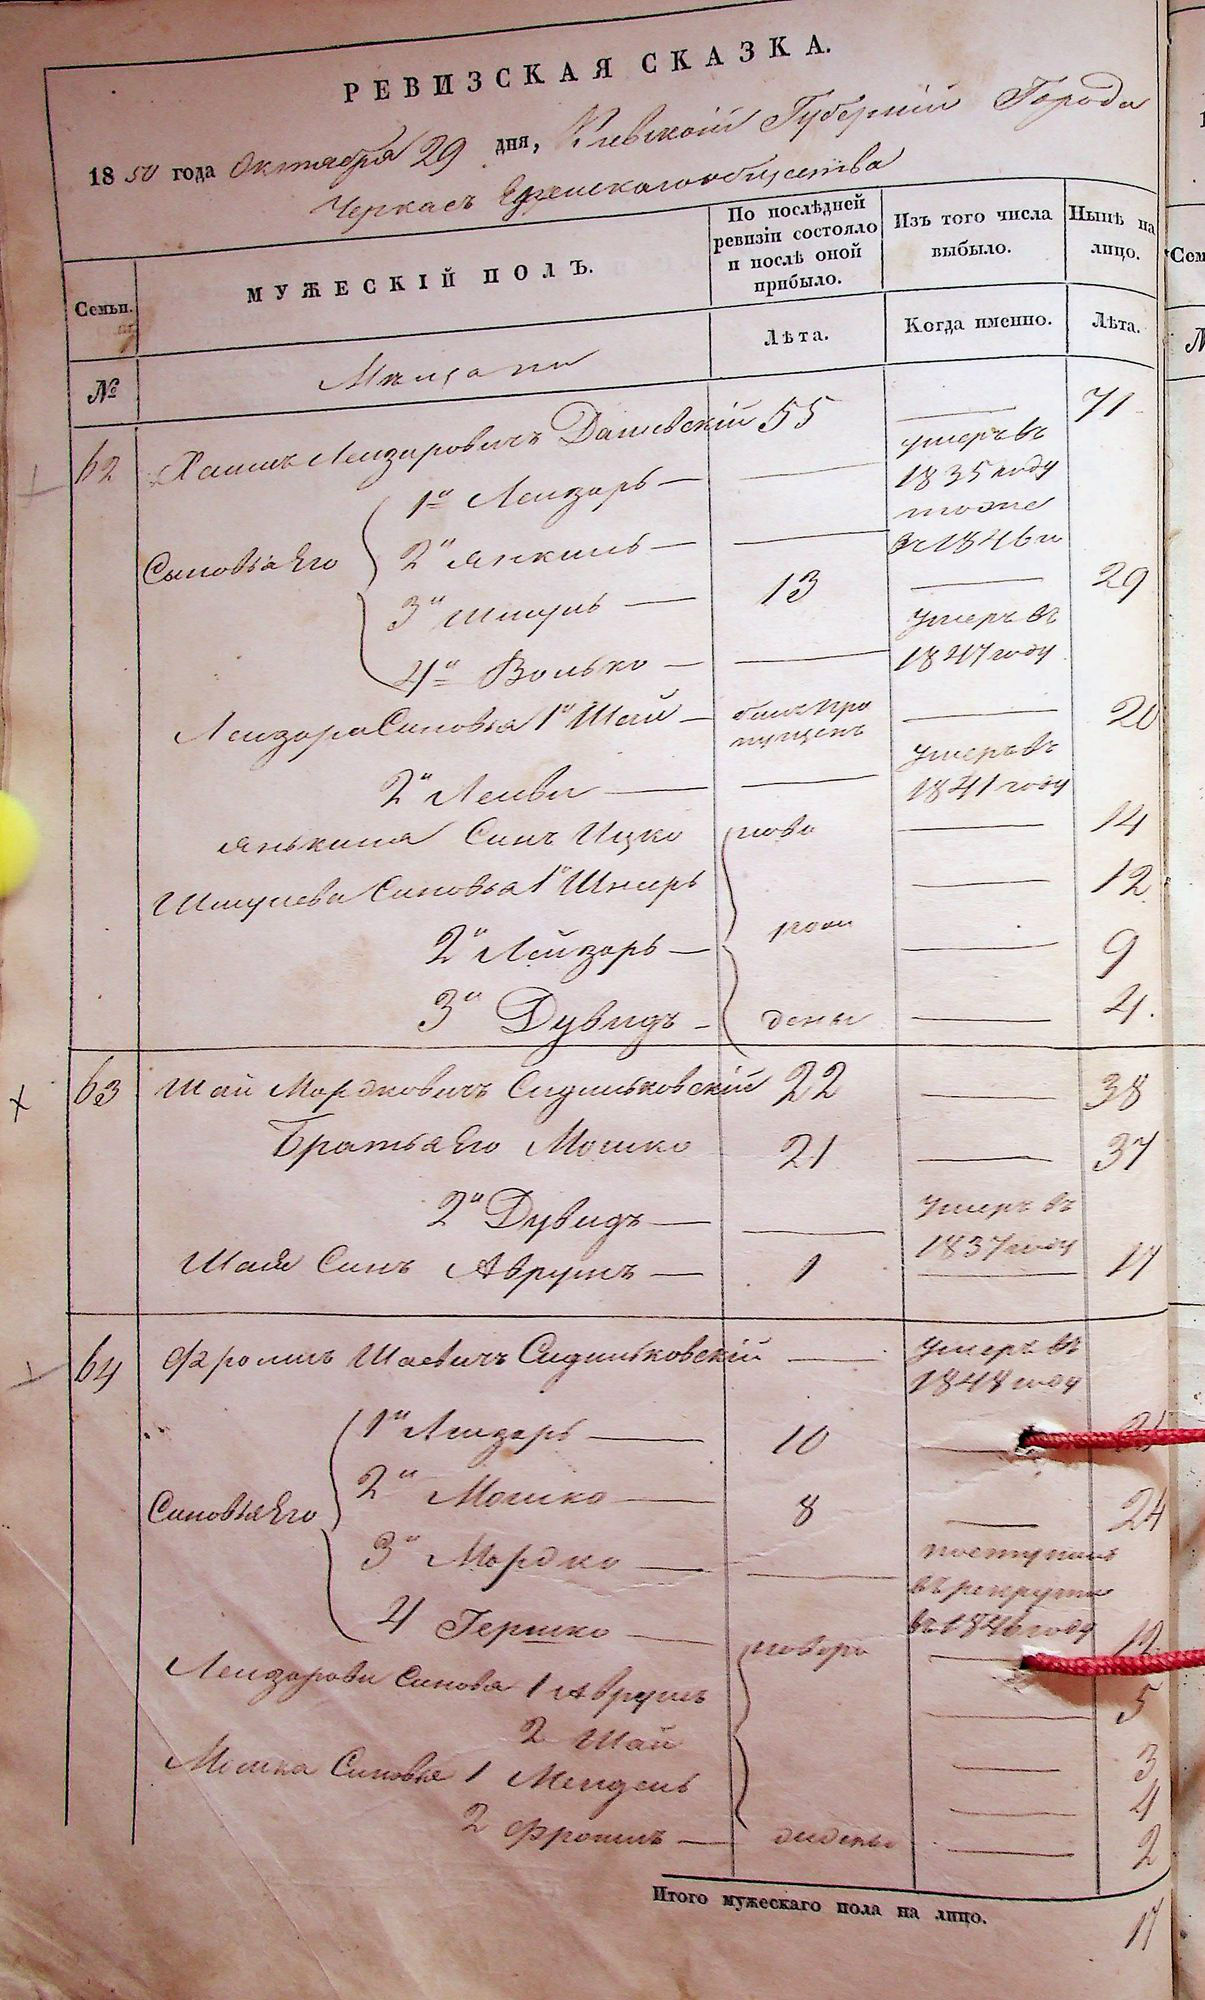 РЕВИЗСКАЯ СКАЗКА.
1850 года Октября 29 дня, Киевской Губернии Города
Черкасъ Еврейскаго общества
Семьи.
МУЖЕСКІЙ ПОЛЪ.
По послѣдней ревизіи состояло и послѣ оной прибыло.
Изъ того числа выбыло.
Нынѣ на лицо.
№
Мѣщане
Лѣта.
Когда именно.
Лѣта.
62 Хаимъ Леизаровичъ Дашевскій 55 — 71
Сыновья Его
1й Леизаръ — — умеръ въ 1835 году
2й Янкель — — тоже въ 1846 го
3й Шмуль — 13 — 29
4й Волько — — умеръ въ 1847 году
Леизара Сыновья 1й Шай — былъ пропущенъ — 20
2й Леиви — — умеръ въ 1841 году
Янькеля Сынъ Ицко ново — 14
Шмулева Сыновья 1й Шнеръ — 12
2й Лейзоръ — рож — 9
3й Дувидъ — дены — 4.
63 Шай Мордковичъ Сидельковскій 22 — 38
Братья Его Мошко 21 — 37
2й Дувидъ — — умеръ въ 1837 году
Шая Сынъ Аврумъ — 1 — 17
64 Фроимъ Шаевичъ Сидельковскій — умеръ въ 1848 году
Сыновья Его
1й Леизаръ — 10 — 26
2й Мошко — 8 — 24
3й Мордко — — поступилъ въ рекруты въ 1840 году
4 Гершко — новоро — 12
Леизарови Сынова 1 Аврумъ — 5
2 Шай — 3
Мошка Сыновья 1 Мендель — 4
2 Фроимъ — жденъ — 2
Итого мужескаго пола на лицо. 17